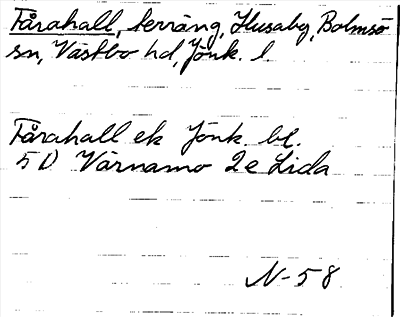 Fårahall, terräng, Husaby, Bolmsö
sn, Västbo hd, Jönk. l.
Fårahall ek Jönk. bl.
5 D Värnamo 2e Lida
N-58